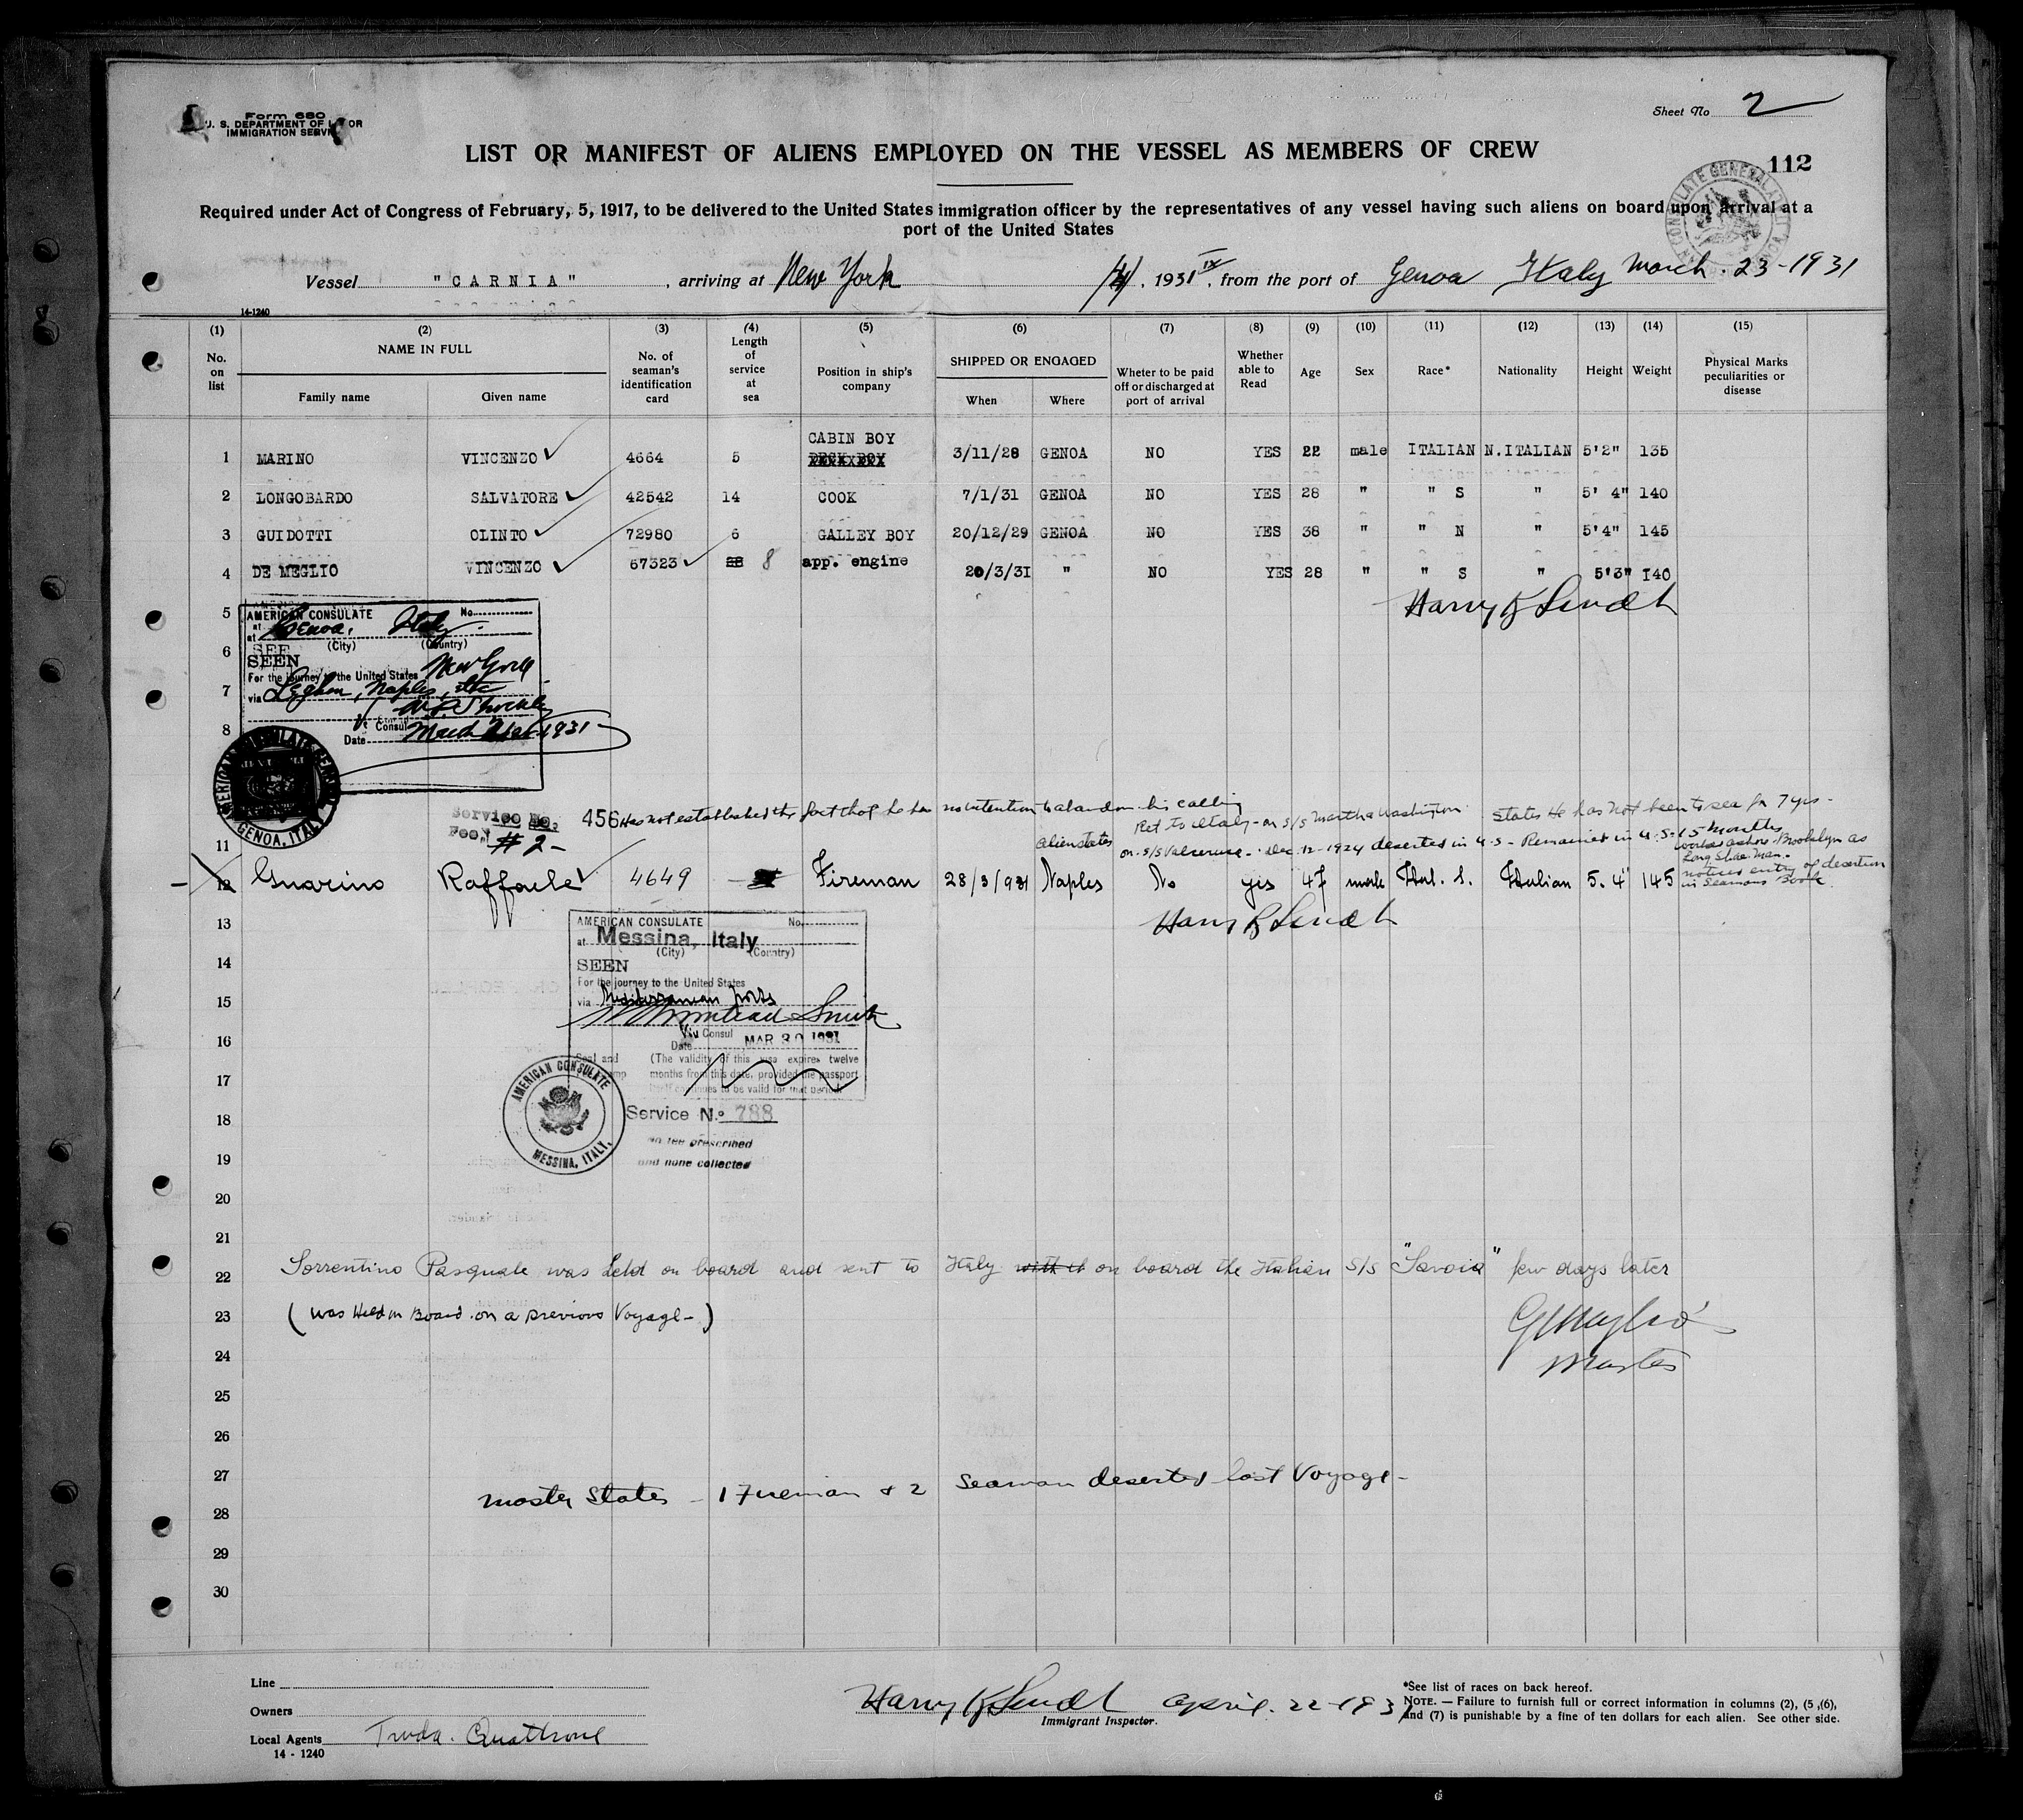 Form 680
U. S. DEPARTMENT OF LABOR
IMMIGRATION SERVICE
Sheet No 2
LIST OR MANIFEST OF ALIENS EMPLOYED ON THE VESSEL AS MEMBERS OF CREW
112
CONSULATE GENERAL
Required under Act of Congress of February, 5, 1917, to be delivered to the United States immigration officer by the representatives of any vessel having such aliens on board upon arrival at a
port of the United States
Vessel "CARNIA" , arriving at New York , 1931 IX, from the port of Genoa Italy March. 23-1931
14-1240
(1) (2) (3) (4) (5) (6) (7) (8) (9) (10) (11) (12) (13) (14) (15)
No. on list
NAME IN FULL
Family name Given name
No. of seaman's identification card
Length of service at sea
Position in ship's company
SHIPPED OR ENGAGED
When Where
Wheter to be paid off or discharged at port of arrival
Whether able to Read
Age Sex Race* Nationality Height Weight
Physical Marks peculiarities or disease
CABIN BOY
1 MARINO VINCENZO 4664 5 DECK BOY 3/11/28 GENOA NO YES 22 male ITALIAN N. ITALIAN 5'2" 135
2 LONGOBARDO SALVATORE 42542 14 COOK 7/1/31 GENOA NO YES 28 " " S " 5' 4" 140
3 GUIDOTTI OLINTO 72980 6 GALLEY BOY 20/12/29 GENOA NO YES 38 " " N " 5'4" 145
4 DE MEGLIO VINCENZO 67323 8 app. engine 20/3/31 " NO YES 28 " " S " 5'3" 140
5
AMERICAN CONSULATE No.
at Genoa, Italy.
(City) (Country)
6
SEEN
For the journey to the United States New York
7
via Leghorn, Naples, etc
8
Consul
Date March 21st 1931
GENOA, ITALY
Service No. 456
Fee # 2-
Has not established the fact that he has no intention to abandon his calling
Ret to Italy - on S/S Martha Washington States He has not been to sea for 7 yrs-
11
alien states on S/S Valcerusa - Dec. 12-1924 deserted in U.S - Remained in U.S-15 months
worked ashore Brooklyn as
Long Shore Man.
notices entry of desertion
in Seamans Book
12 Guarino Raffaele 4649 Fireman 28/3/931 Naples No yes 47 male Ital. S. Italian 5.4" 145
Harry K Lendt
13
AMERICAN CONSULATE No.
at Messina, Italy
(City) (Country)
14
SEEN
For the journey to the United States
15
via Mediterranean ports
16
Consul
Date MAR 30 1931
Seal and
(The validity of this visa expires twelve
17
months from this date, provided the passport
itself continues to be valid for that period)
AMERICAN CONSULATE
MESSINA, ITALY.
18
Service No. 788
No fee prescribed
19
and none collected
20
21
22 Sorrentino Pasquale was held on board and sent to Italy with it on board the Italian S/S "Savoia" few days later
23 (was Held on Board on a previous Voyage-)
24
Master
25
26
27
Master States - 1 Fireman & 2 Seaman deserted last Voyage-
28
29
30
Line
Owners
Local Agents Truda. Quattrone
14 - 1240
Harry K Lendt April. 22-1931
Immigrant Inspector.
*See list of races on back hereof.
NOTE. — Failure to furnish full or correct information in columns (2), (5 ,(6),
and (7) is punishable by a fine of ten dollars for each alien. See other side.